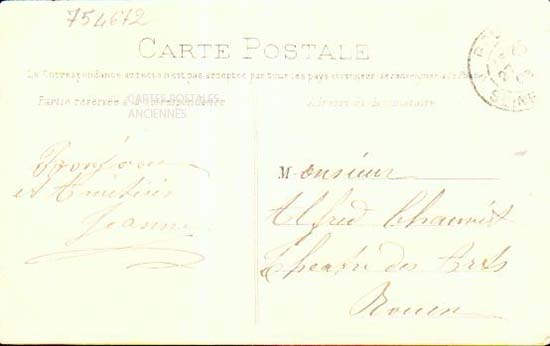 754672
CARTE POSTALE
La Correspondance au recto n'est pas acceptée par tous les pays étrangers. Se renseigner à la Poste
Partie réservée à la correspondance
Adresse du destinataire
CARTES POSTALES
ANCIENNES
Bonjour
et Amitiés
Jeanne
Monsieur
Alfred
Theatre des Arts
Rouen